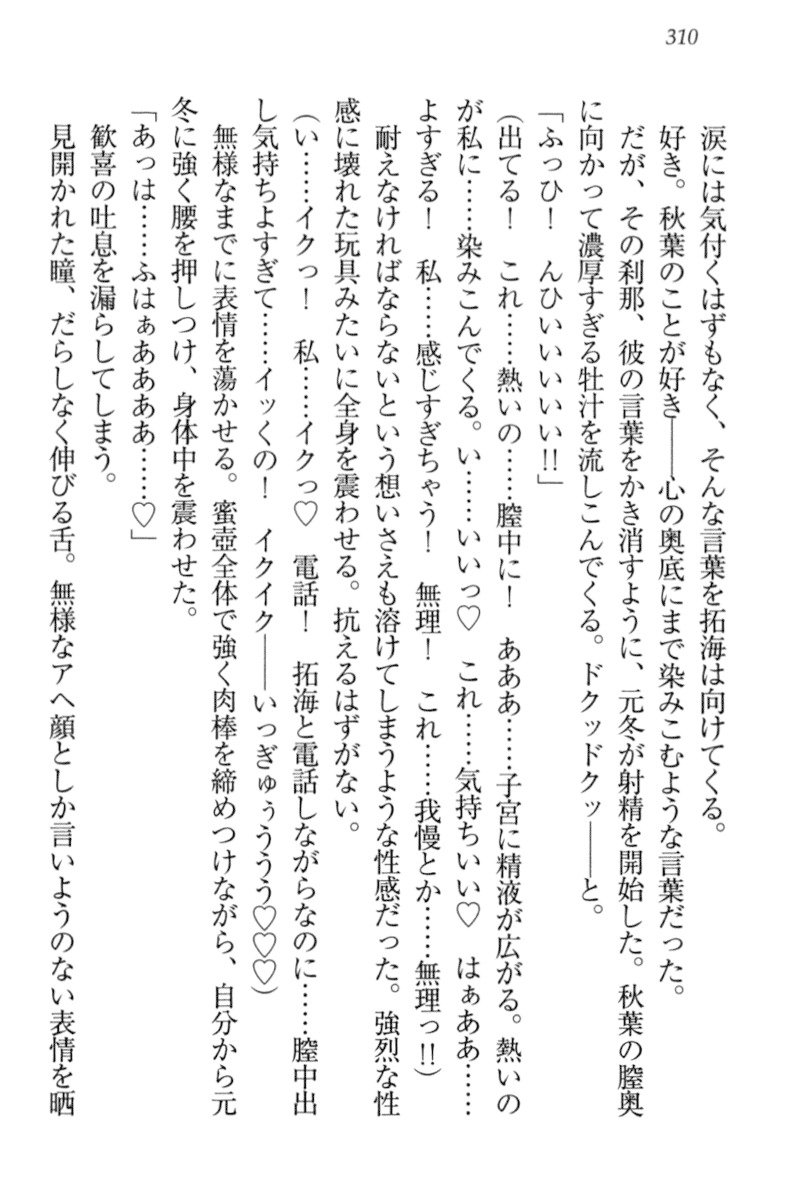 310
涙には気付くはずもなく、そんな言葉を拓海は向けてくる。
好き。秋葉のことが好き――心の奥底にまで染みこむような言葉だった。
だが、その刹那、彼の言葉をかき消すように、元冬が射精を開始した。秋葉の膣奥
に向かって濃厚すぎる牡汁を流しこんでくる。ドクッドクッ――と。
「ふっひ！　んひいいいいい!!」
（出てる！　これ……熱いの……膣中に！　あああ……子宮に精液が広がる。熱いの
が私に……染みこんでくる。い……いいっ♡　これ……気持ちいい♡　はぁああ……
よすぎる！　私……感じすぎちゃう！　無理！　これ……我慢とか……無理っ!!）
耐えなければならないという想いさえも溶けてしまうような性感だった。強烈な性
感に壊れた玩具みたいに全身を震わせる。抗えるはずがない。
（い……イクっ！　私……イクっ♡　電話！　拓海と電話しながらなのに……膣中出
し気持ちよすぎて……イッくの！　イクイク――いっぎゅぅううう♡♡♡）
無様なまでに表情を蕩かせる。蜜壺全体で強く肉棒を締めつけながら、自分から元
冬に強く腰を押しつけ、身体中を震わせた。
「あっは……ふはぁああああ……♡」
歓喜の吐息を漏らしてしまう。
見開かれた瞳、だらしなく伸びる舌。無様なアヘ顔としか言いようのない表情を晒